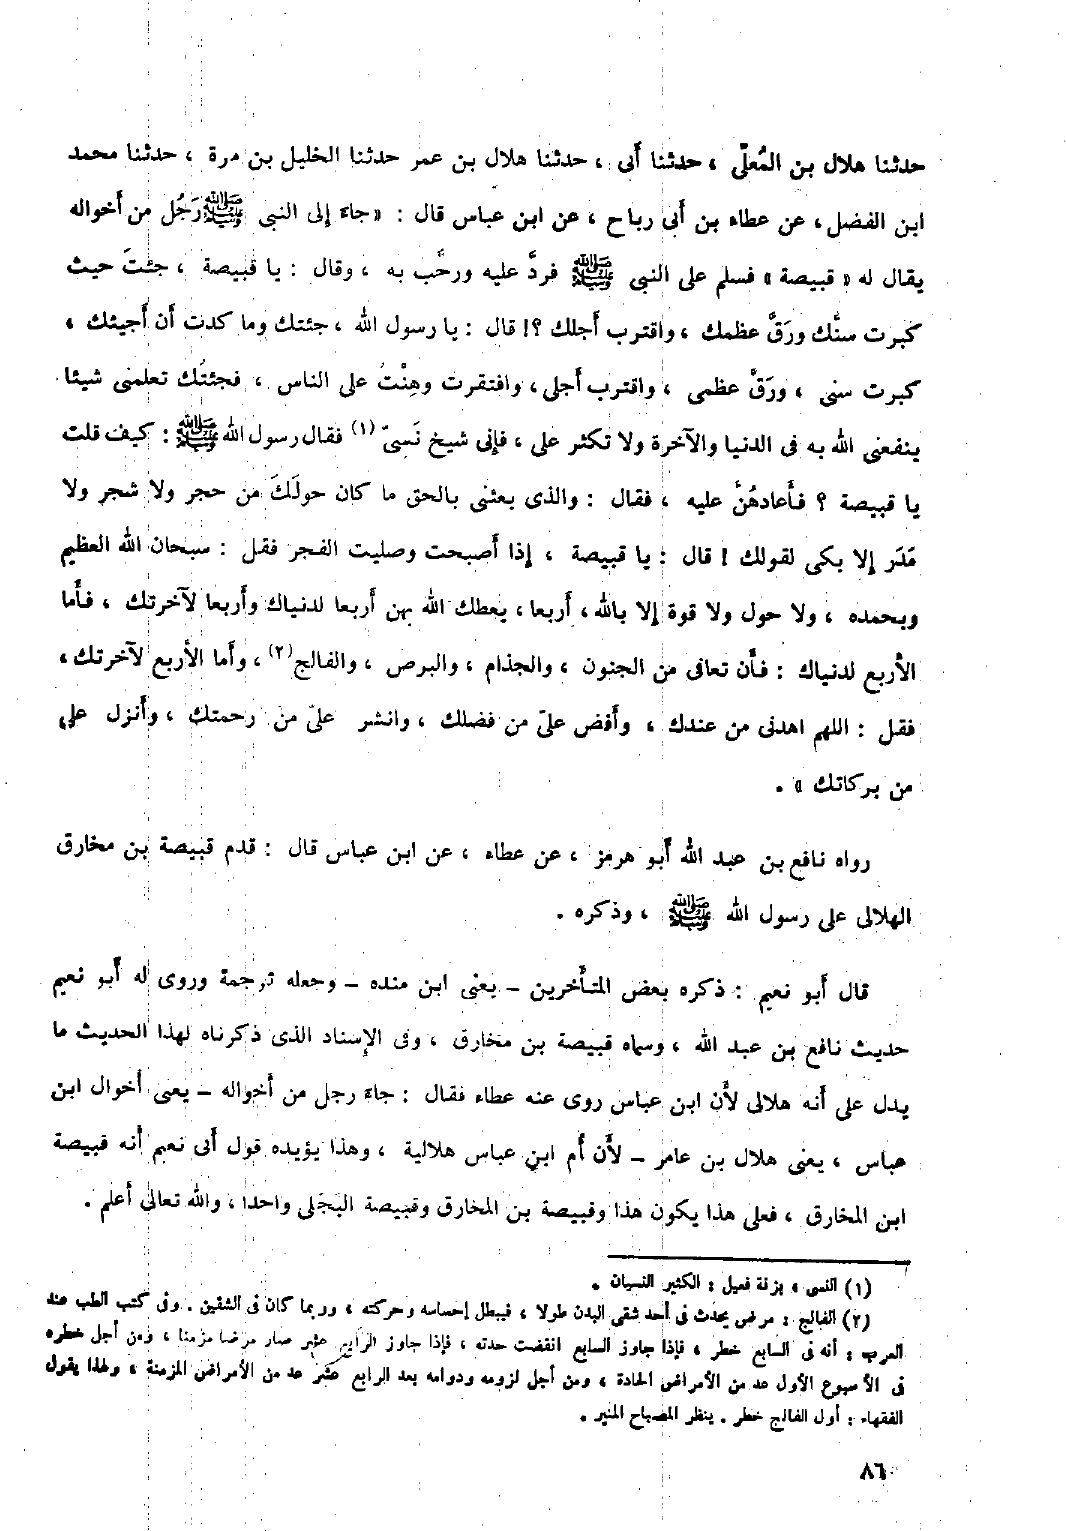 حدثنا هلال بن المُعلّى ، حدثنا أَبى ، حدثنا هلال بن عمر حدثنا الخليل بن مرة ، حدثنا محمد
ابن الفضل ، عن عطاء بن أَبى رباح ، عن ابن عباس قال : « جاءَ إلى النبى ﷺ رَجُل من أَخواله
يقال له « قبيصة » فسلم على النبى ﷺ فردَّ عليه ورحَّب به ، وقال : يا قبيصة ، جئتَ حيث
كبرت سنُّك ورَقَّ عظمك ، واقترب أَجلك ؟! قال : يا رسول الله ، جئتك وما كدت أَن أَجيئك ،
كبرت سنى ، ورَقَّ عظمى ، واقترب أَجلى ، وافتقرت وهِنْتُ على الناس ، فجئتُك تعلمنى شيئا
ينفعنى الله به فى الدنيا والآخرة ولا تكثر على ، فإنى شيخ نَسىّ (١) فقال رسول الله ﷺ : كيف قلت
يا قبيصة ؟ فأَعادهُنَّ عليه ، فقال : والذى بعثنى بالحق ما كان حولَكَ من حجر ولا شجر ولا
مَدَر إلا بكى لقولك ! قال : يا قبيصة ، إذا أَصبحت وصليت الفجر فقل : سبحان الله العظيم
وبحمده ، ولا حول ولا قوة إلا بالله ، أربعا ، يعطك الله بهن أَربعا لدنياك وأَربعا لآخرتك ، فأَما
الأَربع لدنياك : فأَن تعافى من الجنون ، والجذام ، والبرص ، والفالج (٢) ، وأَما الأَربع لآخرتك ،
فقل : اللهم اهدنى من عندك ، وأَفض علىّ من فضلك ، وانشر علىّ من رحمتك ، وأَنزل على
من بركاتك » .
رواه نافع بن عبد الله أَبو هرمز ، عن عطاء ، عن ابن عباس قال : قدم قبيصة بن مخارق
الهلالى على رسول الله ﷺ ، وذكره .
قال أَبو نعيم : ذكره بعض المتأَخرين – يعنى ابن منده – وجعله ترجمة وروى له أَبو نعيم
حديث نافع بن عبد الله ، وسماه قبيصة بن مخارق ، وفى الإسناد الذى ذكرناه لهذا الحديث ما
يدل على أَنه هلالى لأَن ابن عباس روى عنه عطاء فقال : جاءَ رجل من أَخواله – يعنى أَخوال ابن
عباس ، يعنى هلال بن عامر – لأَن أُم ابن عباس هلالية ، وهذا يؤيده قول أَبى نعيم أَنه قبيصة
ابن المخارق ، فعلى هذا يكون هذا وقبيصة بن المخارق وقبيصة البجَلى واحدا ، والله تعالى أَعلم .
(١) النسى ، بزنة فعيل : الكثير النسيان .
(٢) الفالج : مرض يحدث فى أحد شقى البدن طولا ، فيبطل إحساسه وحركته ، وربما كان فى الشقين . وفى كتب الطب عند
العرب : أنه فى السابع خطر ، فإذا جاوز السابع انقضت حدته ، فإذا جاوز الرابع عشر صار مرضا مزمنا ، ومن أجل خطره
فى الأسبوع الأول عد من الأمراض الحادة ، ومن أجل لزومه ودوامه بعد الرابع عشر عد من الأمراض المزمنة ، ولهذا يقول
الفقهاء : أول الفالج خطر . ينظر المصباح المنير .
٨٦